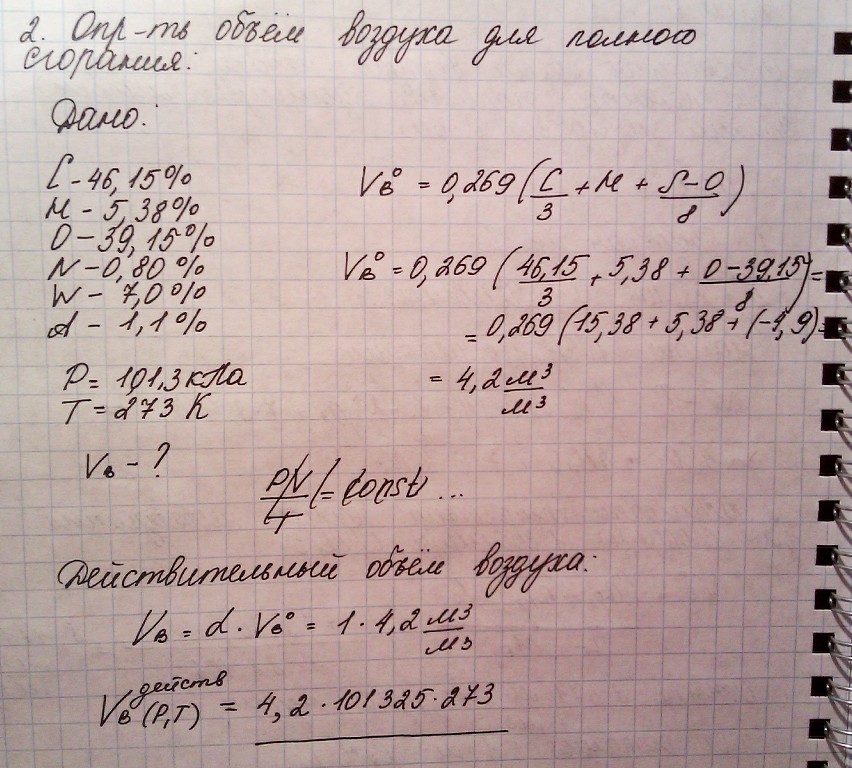 2. Опр-ть объём воздуха для полного
сгорания:
Дано:
C - 46,15%
H - 5,38%
O - 39,15%
N - 0,80%
W - 7,0%
A - 1,1%
P = 101,3 кПа
T = 273 К
Vв - ?
Vв° = 0,269 (C/3 + H + S-O/8)
Vв° = 0,269 (46,15/3 + 5,38 + 0-39,15/8) =
= 0,269 (15,38 + 5,38 + (-4,9) =
= 4,2 м³/м³
PV/T = const ...
Действительный объём воздуха:
Vв = α · Vв° = 1 · 4,2 м³/м³
Vв действ (P,T) = 4,2 · 101325 · 273